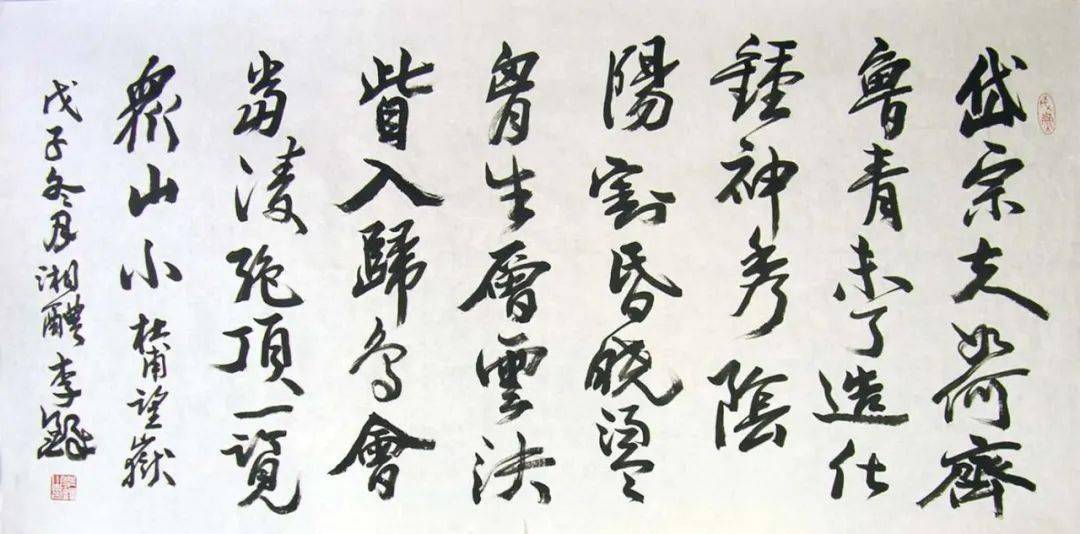 岱宗夫如何齊
魯青未了造化
鍾神秀陰
陽割昏曉盪
胷生層雲決
眥入歸鳥會
當淩絕頂一覽
衆山小 杜甫望嶽
戊子冬月湘醴李